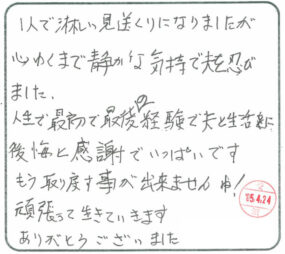 1人で淋しい見送くりになりましたが
心ゆくまで静かな気持で夫を忍び
ました。
人生で最初で最後の経験で夫と生活に
後悔と感謝でいっぱいです
もう取り戻す事が出来ませんね!
頑張って生きていきます
ありがとうございました
25.4.24